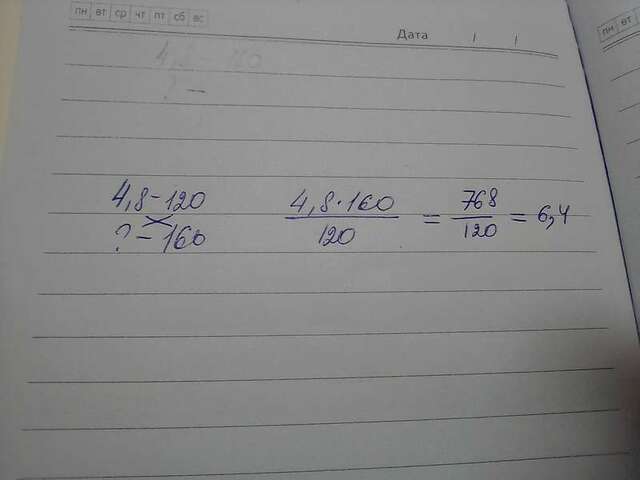 пн вт ср чт пт сб вс
Дата / /
пн вт
4,8 - 120
? - 160
4,8 · 160 / 120 = 768 / 120 = 6,4